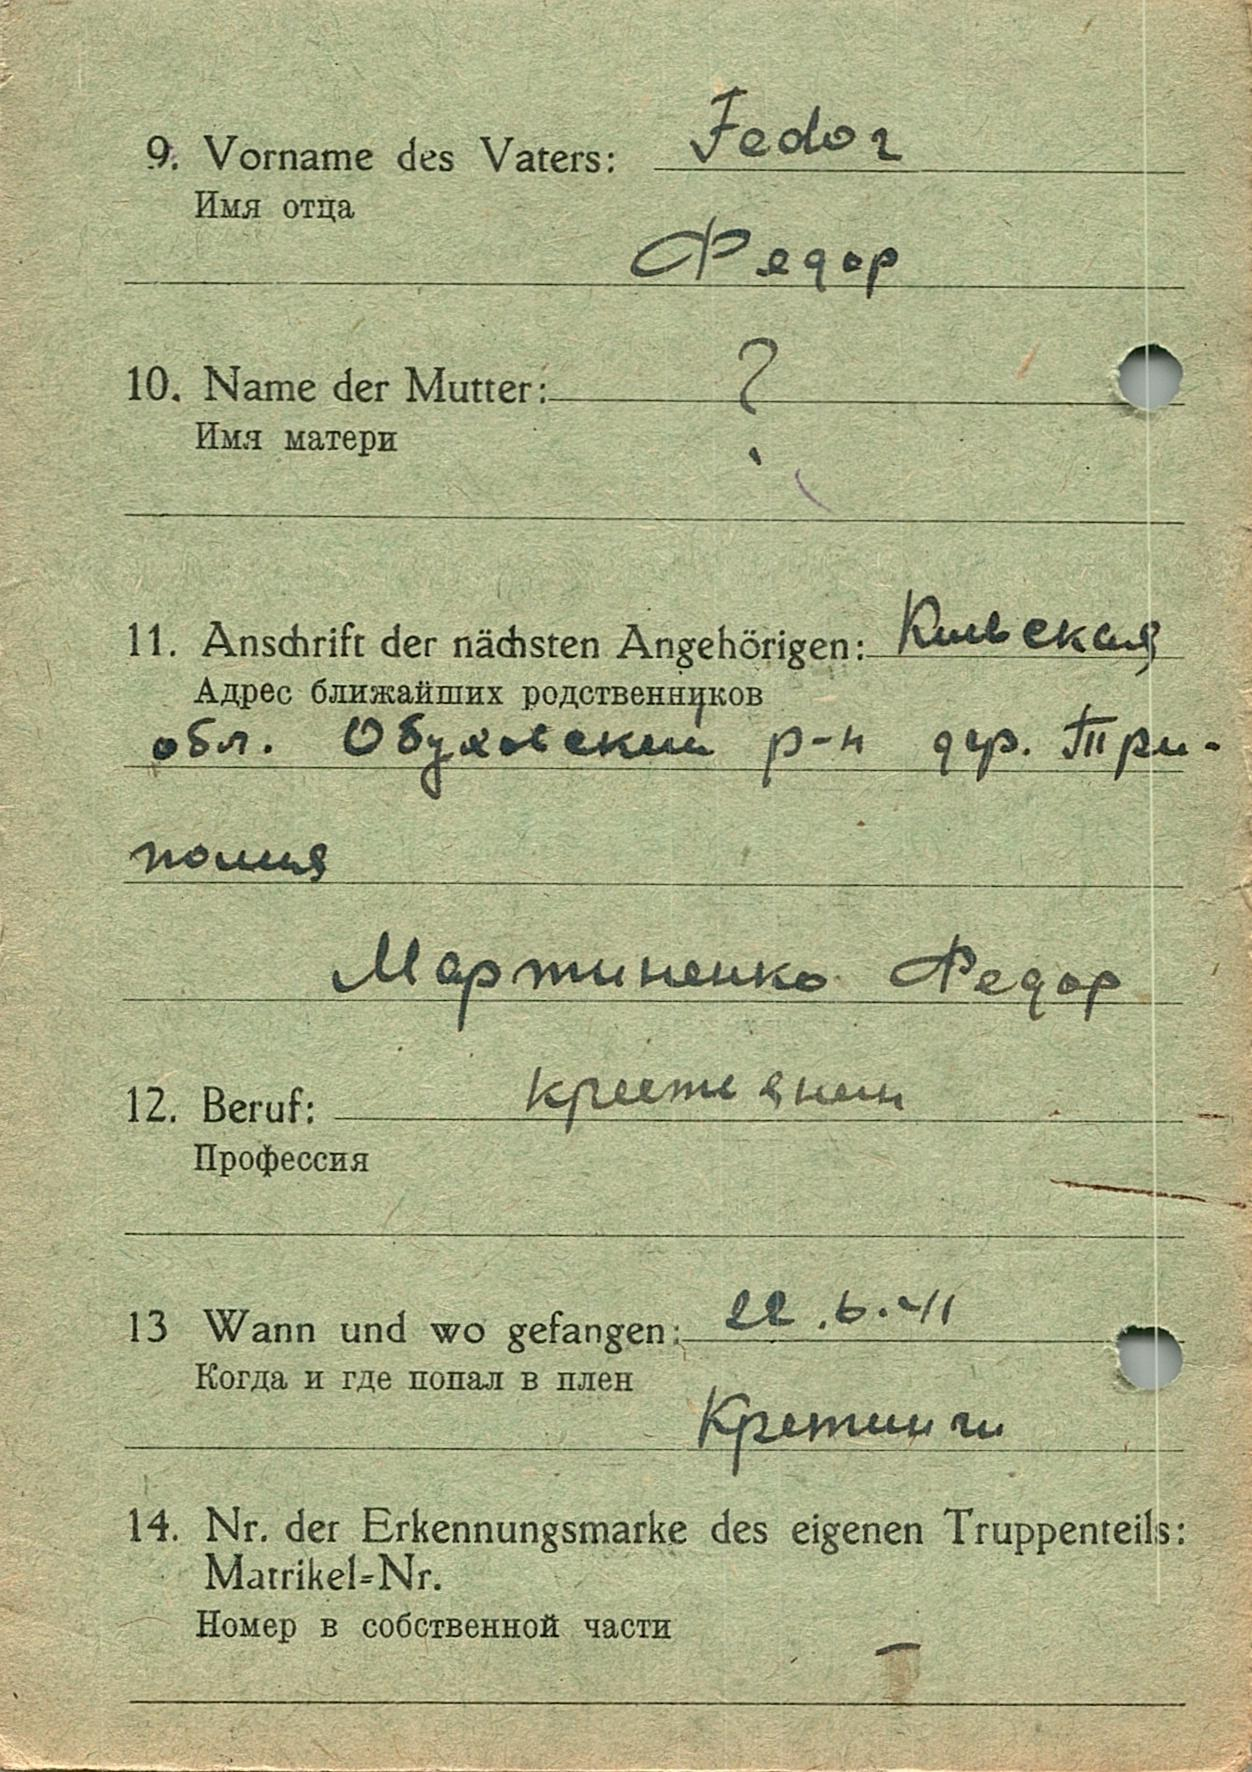 9. Vorname des Vaters: Fedor
Имя отца
Федор
10. Name der Mutter: ?
Имя матери
11. Anschrift der nächsten Angehörigen: Киевская
Адрес ближайших родственников
обл. Обуховский р-н дер. Три-
полия
Мартиненко Федор
12. Beruf: крестянин
Профессия
13 Wann und wo gefangen: 22.6.41
Когда и где попал в плен
Кретинги
14. Nr. der Erkennungsmarke des eigenen Truppenteils:
Matrikel-Nr.
Номер в собственной части
—